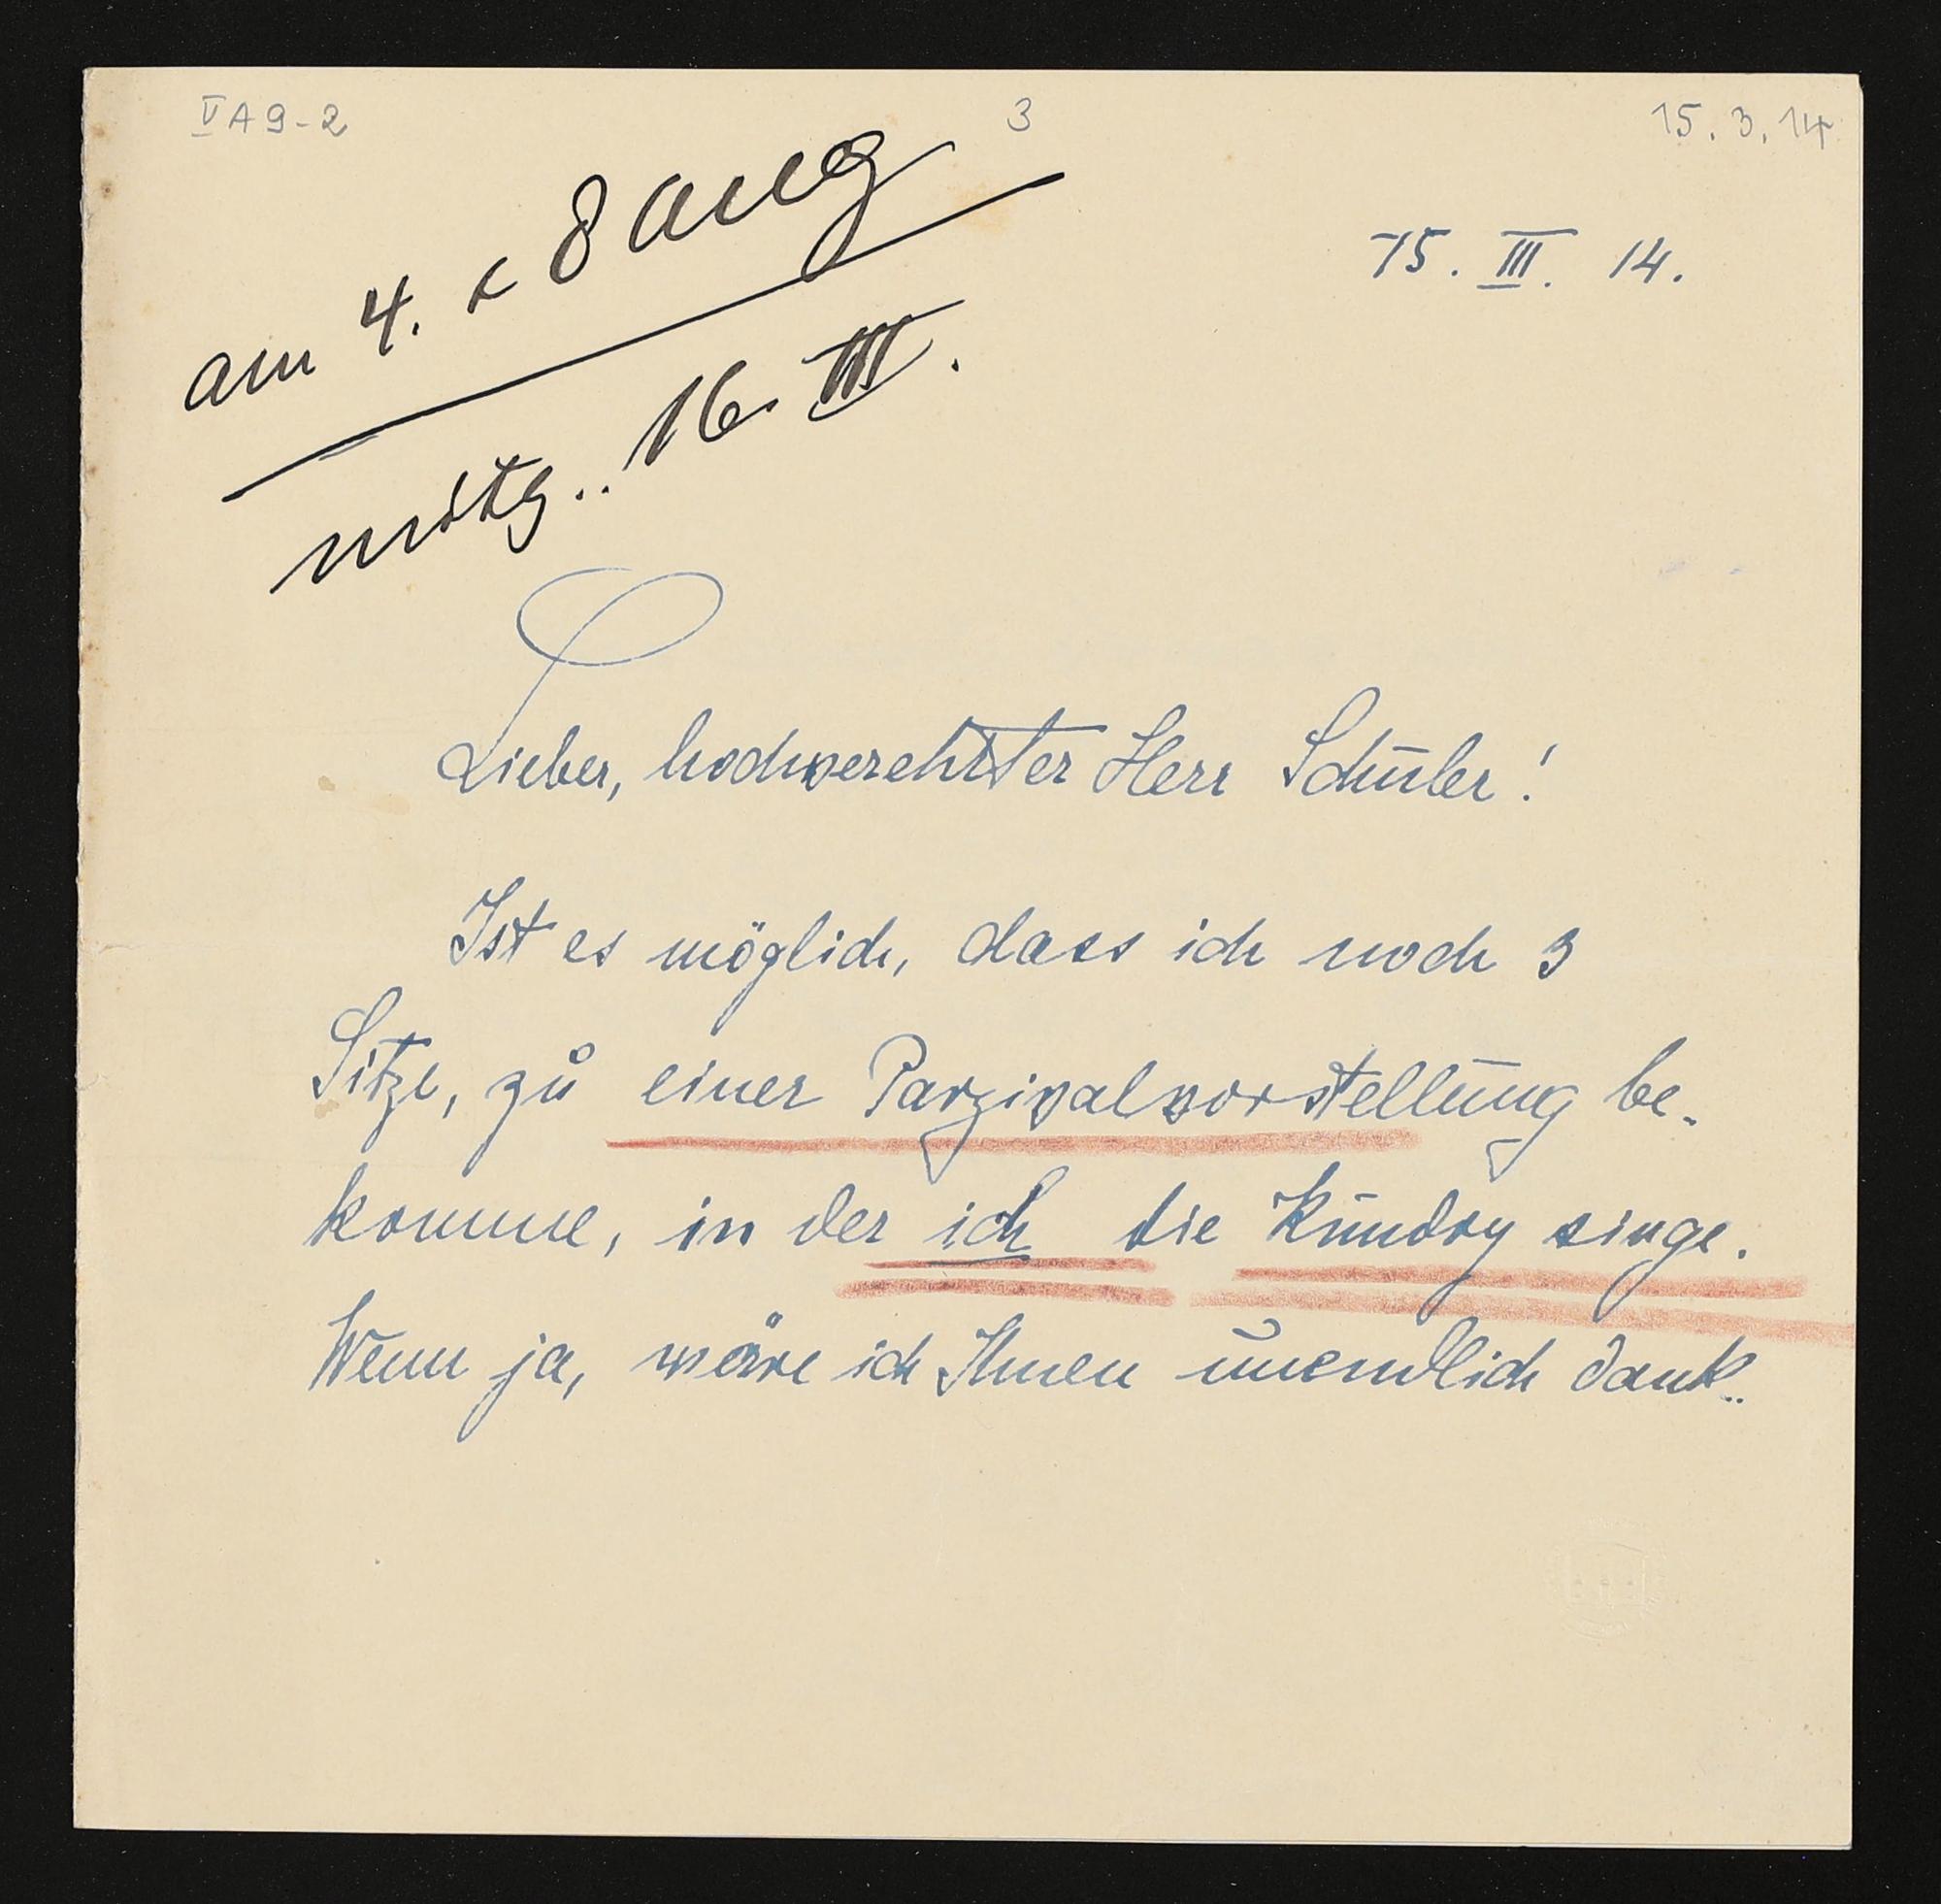 V A 9-2
3
15. 3. 14
am 4. & 8 Aug
mitg.. 16. III.
15. III. 14.
Lieber, hochverehrter Herr Schuler!
Ist es möglich, dass ich noch 3
Sitze, zu einer Parzivalvorstellung be-
komme, in der ich die Kundry singe.
Wenn ja, wäre ich Ihnen unendlich dank-